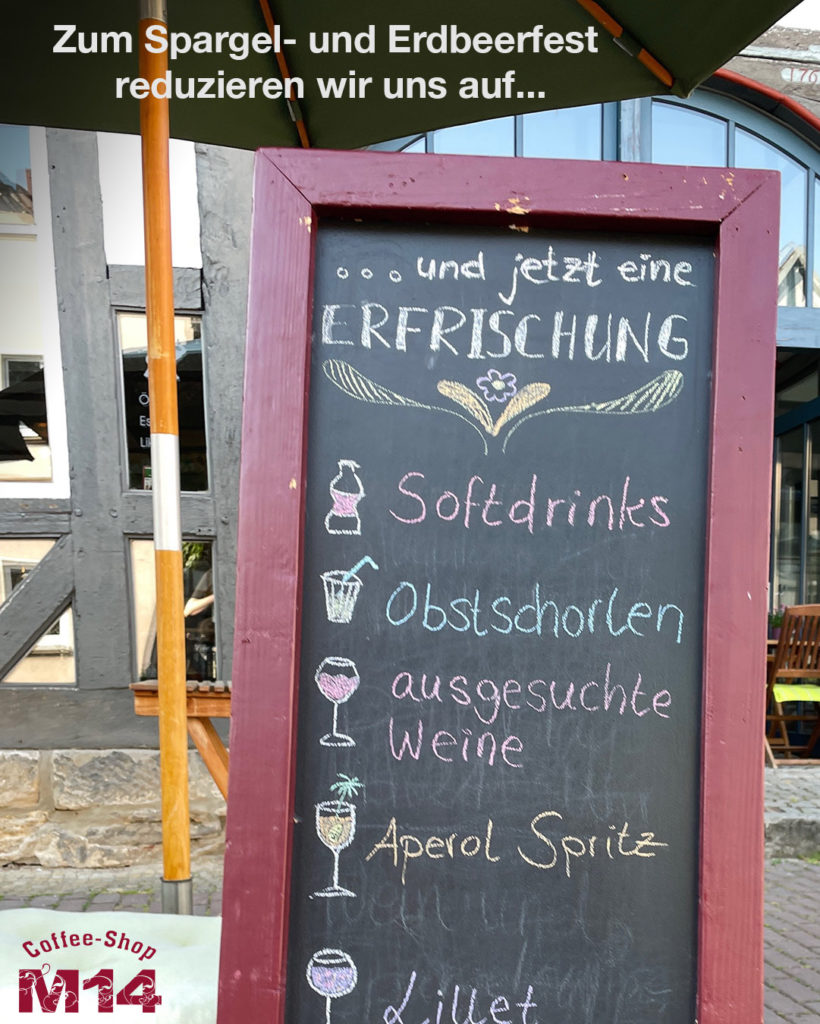 Zum Spargel- und Erdbeerfest
reduzieren wir uns auf...
... und jetzt eine
ERFRISCHUNG
Softdrinks
Obstschorlen
ausgesuchte
Weine
Aperol Spritz
Lillet
Coffee-Shop
M14